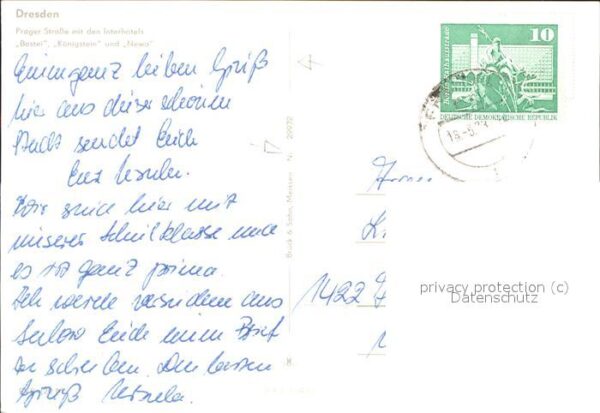 Dresden
Prager Straße mit den Interhotels
„Bastei", „Königstein" und „Newa"
Einen ganz lieben Gruß
hier aus dieser schönen
Stadt sendet Euch
Eure Ursula.
Wir sind hier mit
unserer Schulklasse und
es ist ganz prima.
Ich werde versuchen aus
Euch einen Brief
zu schreiben. Den besten
Gruß Ursula.
Druck & Sohn, Meissen Nr.
10
DEUTSCHE DEMOKRATISCHE REPUBLIK
1422
privacy protection (c)
Datenschutz